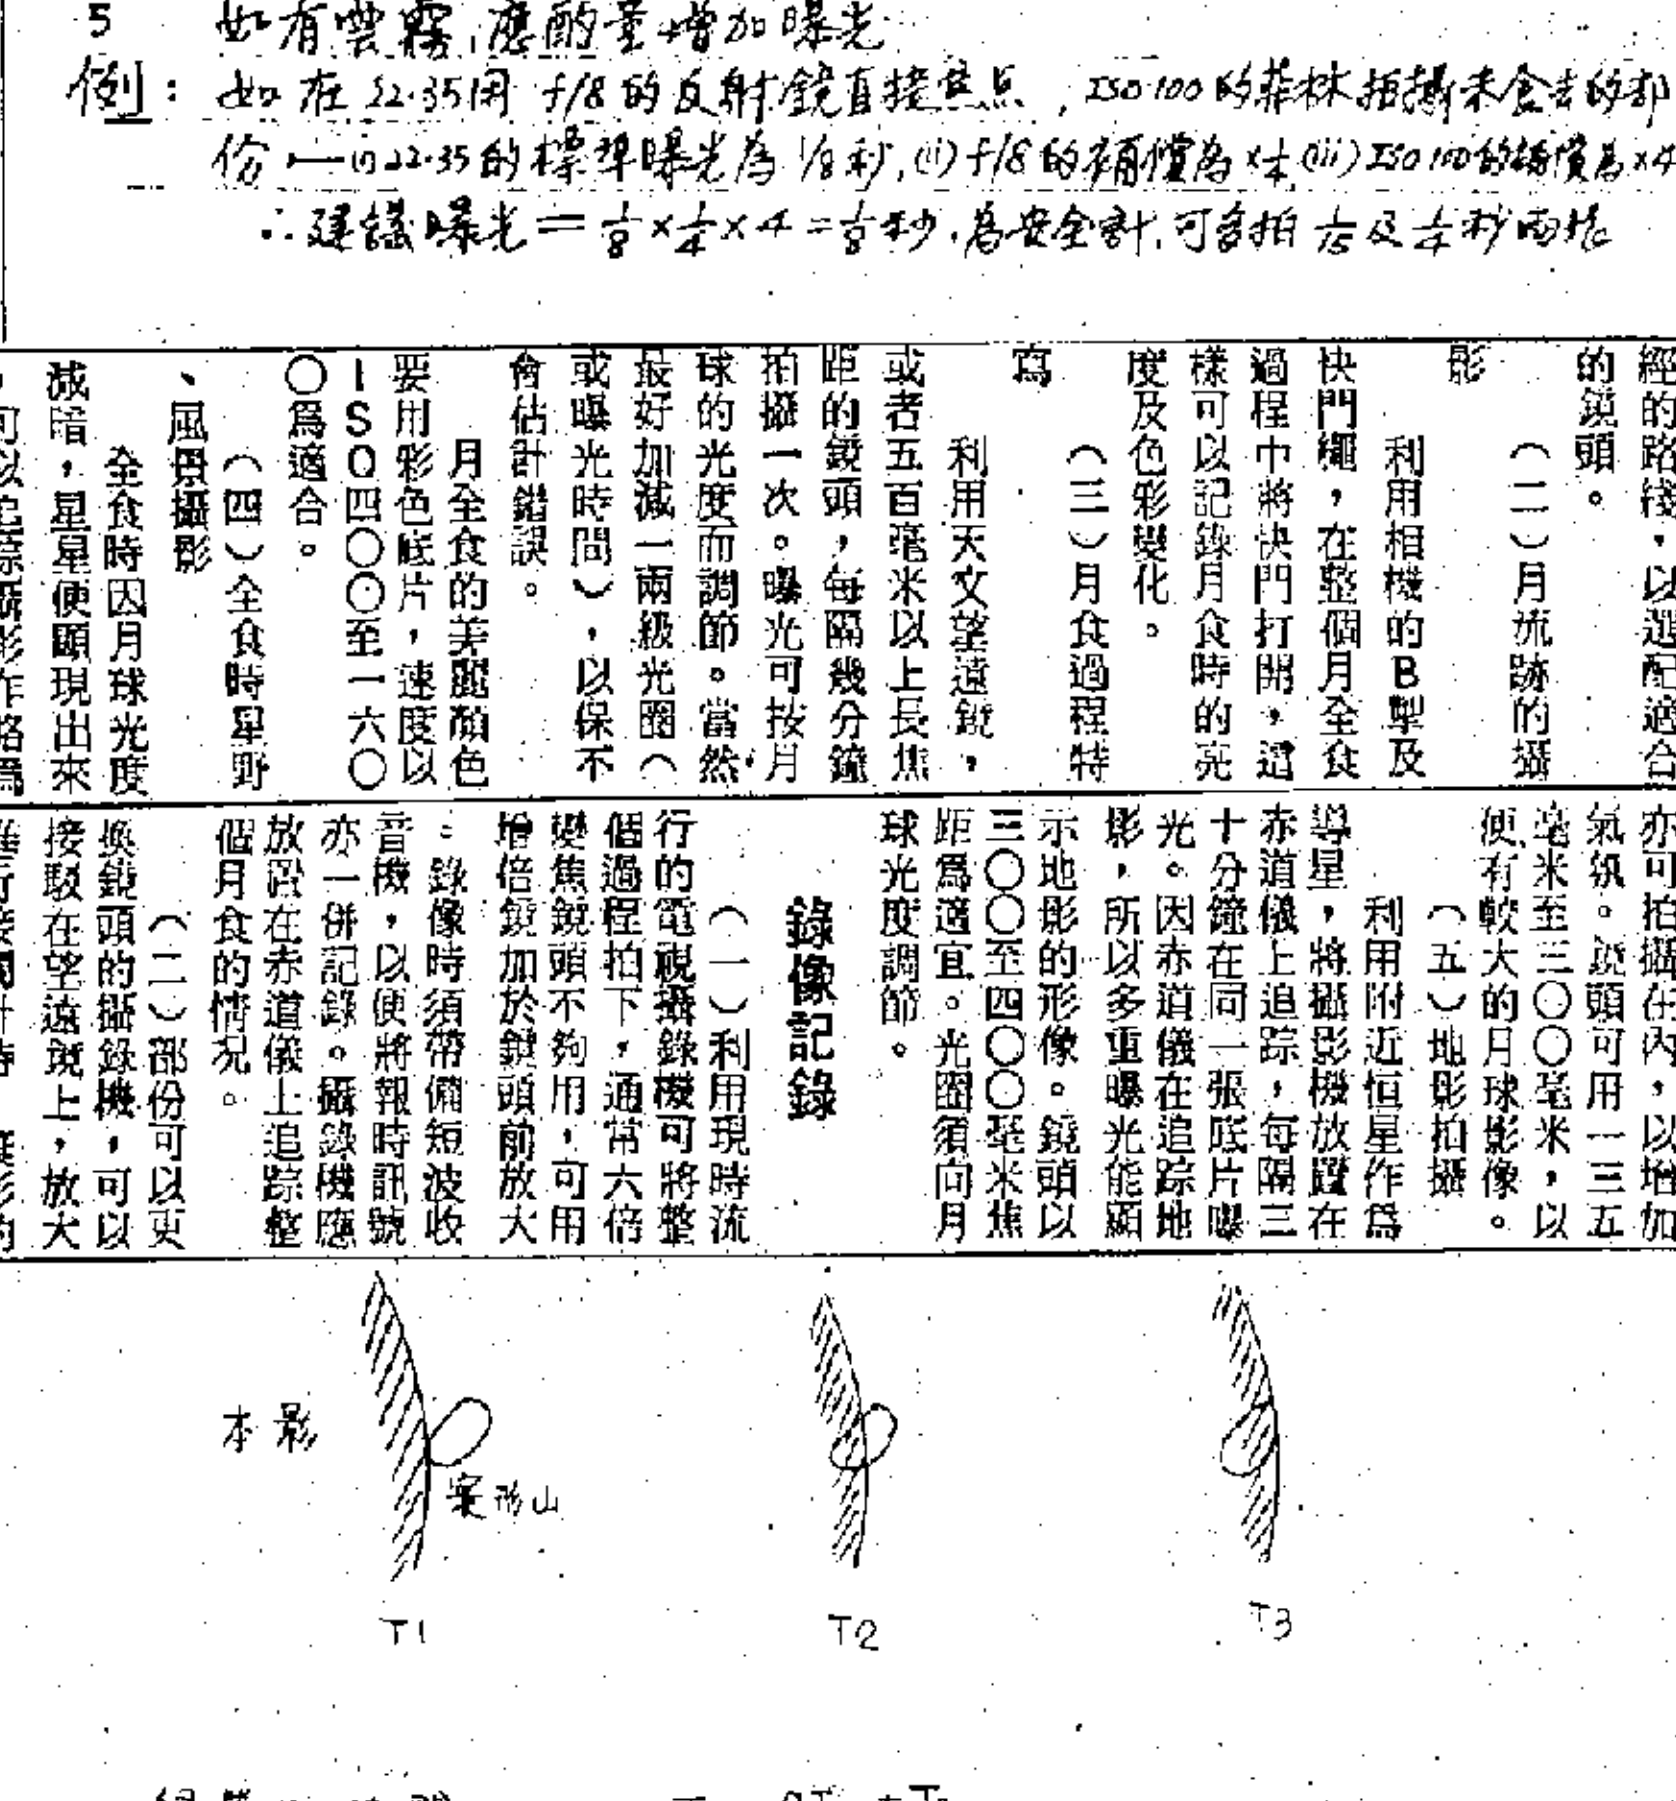 5 如有雲霧,應酌量增加曝光
例: 如在22.35用 f/8 的反射鏡直接焦点,ISO 100 的菲林拍攝未食去的部
份,—(i)22.35的標準曝光為 1/8 秒,(ii) f/8 的補償為 ×1/4 (iii) ISO 100 的補償為 ×4
∴建議曝光 = 1/8 × 1/4 × 4 = 1/8 秒.為安全計,可多拍 1/15 及 1/4 秒兩張
經的路綫,以選配適合
的鏡頭。
(二)月流跡的攝
影
利用相機的B掣及
快門繩,在整個月全食
過程中將快門打開,這
樣可以記錄月食時的亮
度及色彩變化。
(三)月食過程特
寫
利用天文望遠鏡,
或者五百毫米以上長焦
距的鏡頭,每隔幾分鐘
拍攝一次。曝光可按月
球的光度而調節。當然
最好加減一兩級光圈(
或曝光時間),以保不
會估計錯誤。
月全食的美麗顏色
要用彩色底片,速度以
ISO四〇〇至一六〇
〇爲適合。
(四)全食時星野
、風景攝影
全食時因月球光度
減暗,星星便顯現出來
,可以追踪攝影作略爲
亦可拍攝在內,以增加
氣氛。鏡頭可用一三五
毫米至三〇〇毫米,以
便有較大的月球影像。
(五)地影拍攝
利用附近恒星作爲
導星,將攝影機放置在
赤道儀上追踪,每隔三
十分鐘在同一張底片曝
光。因赤道儀在追踪地
影,所以多重曝光能顯
示地影的形像。鏡頭以
三〇〇至四〇〇毫米焦
距爲適宜。光圈須向月
球光度調節。
錄像記錄
(一)利用現時流
行的電視攝錄機可將整
個過程拍下,通常六倍
變焦鏡頭不夠用,可用
增倍鏡加於鏡頭前放大
。錄像時須帶備短波收
音機,以便將報時訊號
亦一併記錄。攝錄機應
放置在赤道儀上追踪整
個月食的情况。
(二)部份可以更
換鏡頭的攝錄機,可以
接駁在望遠鏡上,放大
本影
環形山
T1
T2
T3